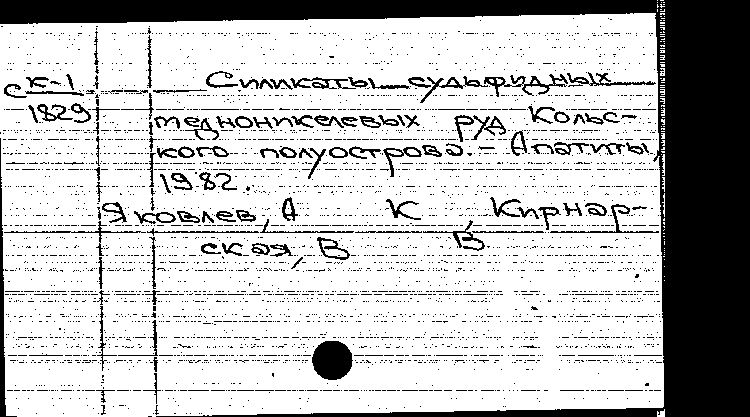 с К-1 Силикаты сульфидных
1829
медноникелевых руд Кольс-
кого полуострова. - Апатиты,
1982.
Яковлев, А К , Кирнар-
ская, В В